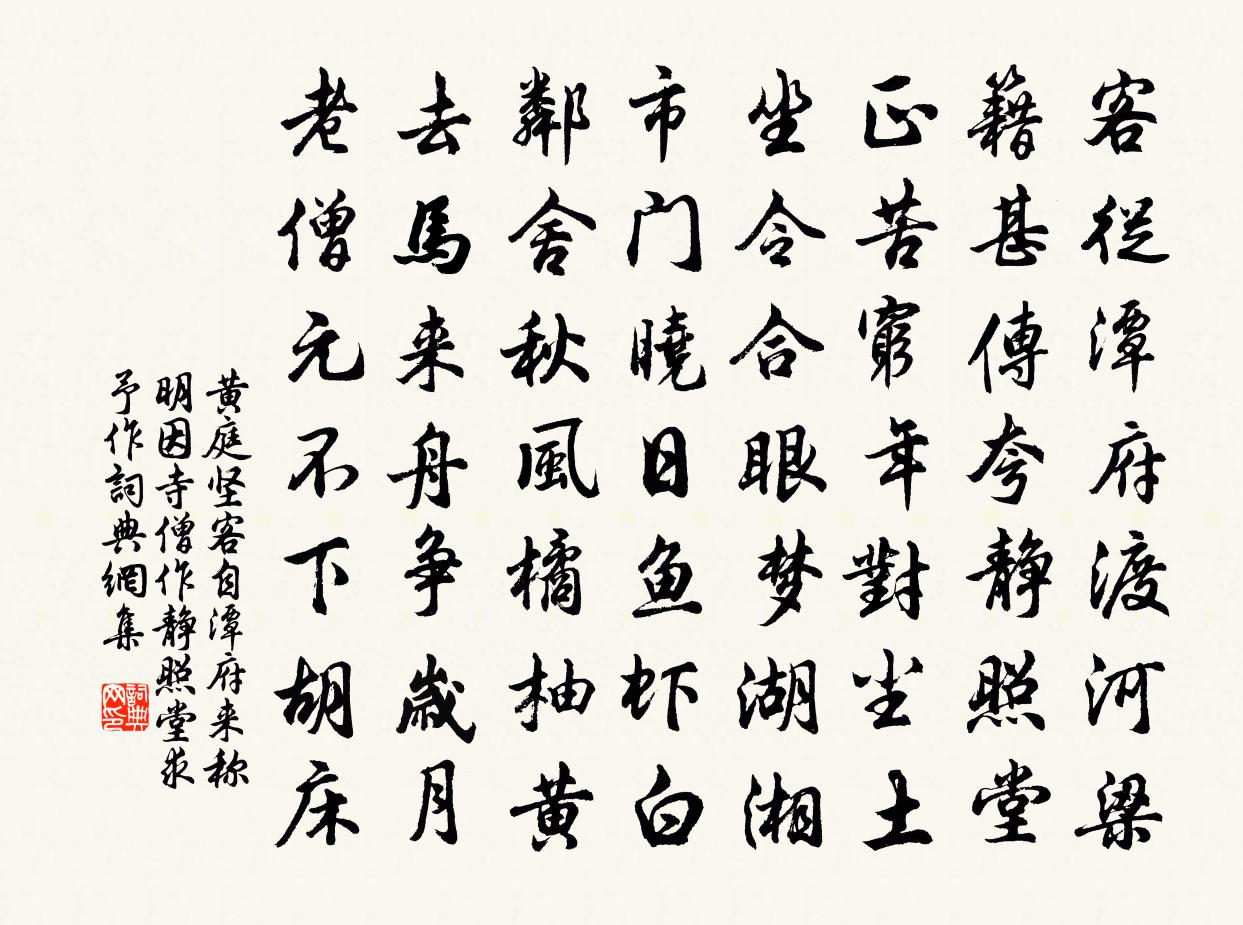 客從潭府渡河梁
籍甚傳夸靜照堂
正苦窮年對尘土
坐令合眼梦湖湘
市门曉日鱼虾白
鄰舍秋風橘柚黄
去馬来舟争歲月
老僧元不下胡床
黄庭坚客自潭府来称
明因寺僧作静照堂求
予作詞典網集
詞典
网印